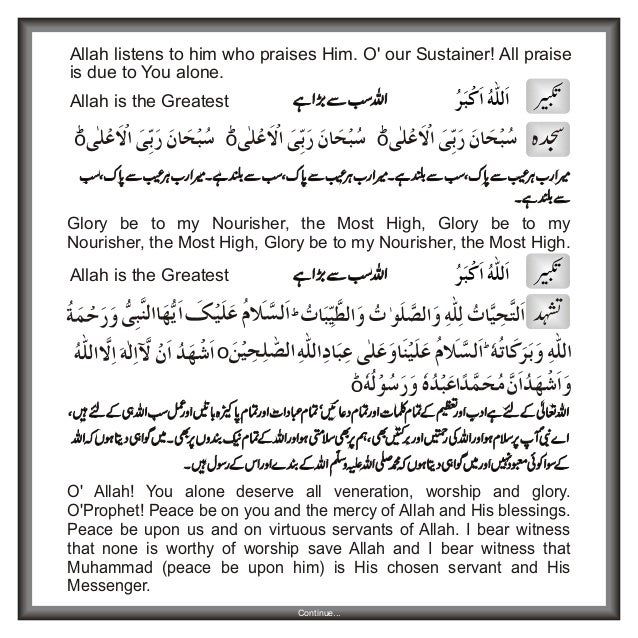 Allah listens to him who praises Him. O' our Sustainer! All praise
is due to You alone.
تکبیر اَللّٰهُ اَکْبَرُ اللہ سب سے بڑا ہے Allah is the Greatest
سجدہ سُبْحَانَ رَبِّیَ الْاَعْلٰی ٥ سُبْحَانَ رَبِّیَ الْاَعْلٰی ٥ سُبْحَانَ رَبِّیَ الْاَعْلٰی ٥
میرا رب ہر عیب سے پاک، سب سے بلند ہے۔ میرا رب ہر عیب سے پاک، سب سے بلند ہے۔ میرا رب ہر عیب سے پاک، سب
سے بلند ہے۔
Glory be to my Nourisher, the Most High, Glory be to my
Nourisher, the Most High, Glory be to my Nourisher, the Most High.
تکبیر اَللّٰهُ اَکْبَرُ اللہ سب سے بڑا ہے Allah is the Greatest
تشہد اَلتَّحِیَّاتُ لِلّٰهِ وَالصَّلَوٰتُ وَالطَّیِّبَاتُ ؕ اَلسَّلَامُ عَلَیْکَ اَیُّهَا النَّبِیُّ وَرَحْمَةُ
اللّٰهِ وَبَرَکَاتُهٗ ؕ اَلسَّلَامُ عَلَیْنَا وَعَلٰی عِبَادِ اللّٰهِ الصّٰلِحِیْنَ ٥ اَشْهَدُ اَنْ لَّآ اِلٰهَ اِلَّا اللّٰهُ
وَاَشْهَدُ اَنَّ مُحَمَّدًا عَبْدُهٗ وَرَسُوْلُهٗ ٥
اللہ تعالیٰ کے لئے ہے ادب اور تعظیم کے تمام کلمات اور تمام دعائیں، تمام عبادات اور تمام پاکیزہ باتیں اور عمل سب اللہ ہی کے لئے ہیں،
اے نبی آپ پر سلام ہو اور اللہ کی رحمتیں اور برکتیں بھی، ہم پر بھی سلامتی ہو اور اللہ کے تمام نیک بندوں پر بھی۔ میں گواہی دیتا ہوں کہ اللہ
کے سوا کوئی معبود نہیں اور میں گواہی دیتا ہوں کہ محمد صلی اللہ علیہ وسلم اللہ کے بندے اور اس کے رسول ہیں۔
O' Allah! You alone deserve all veneration, worship and glory.
O'Prophet! Peace be on you and the mercy of Allah and His blessings.
Peace be upon us and on virtuous servants of Allah. I bear witness
that none is worthy of worship save Allah and I bear witness that
Muhammad (peace be upon him) is His chosen servant and His
Messenger.
Continue...